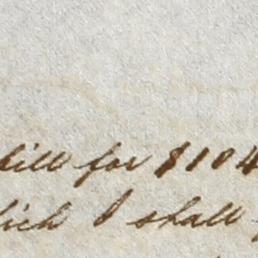 bill for $104
which I shall